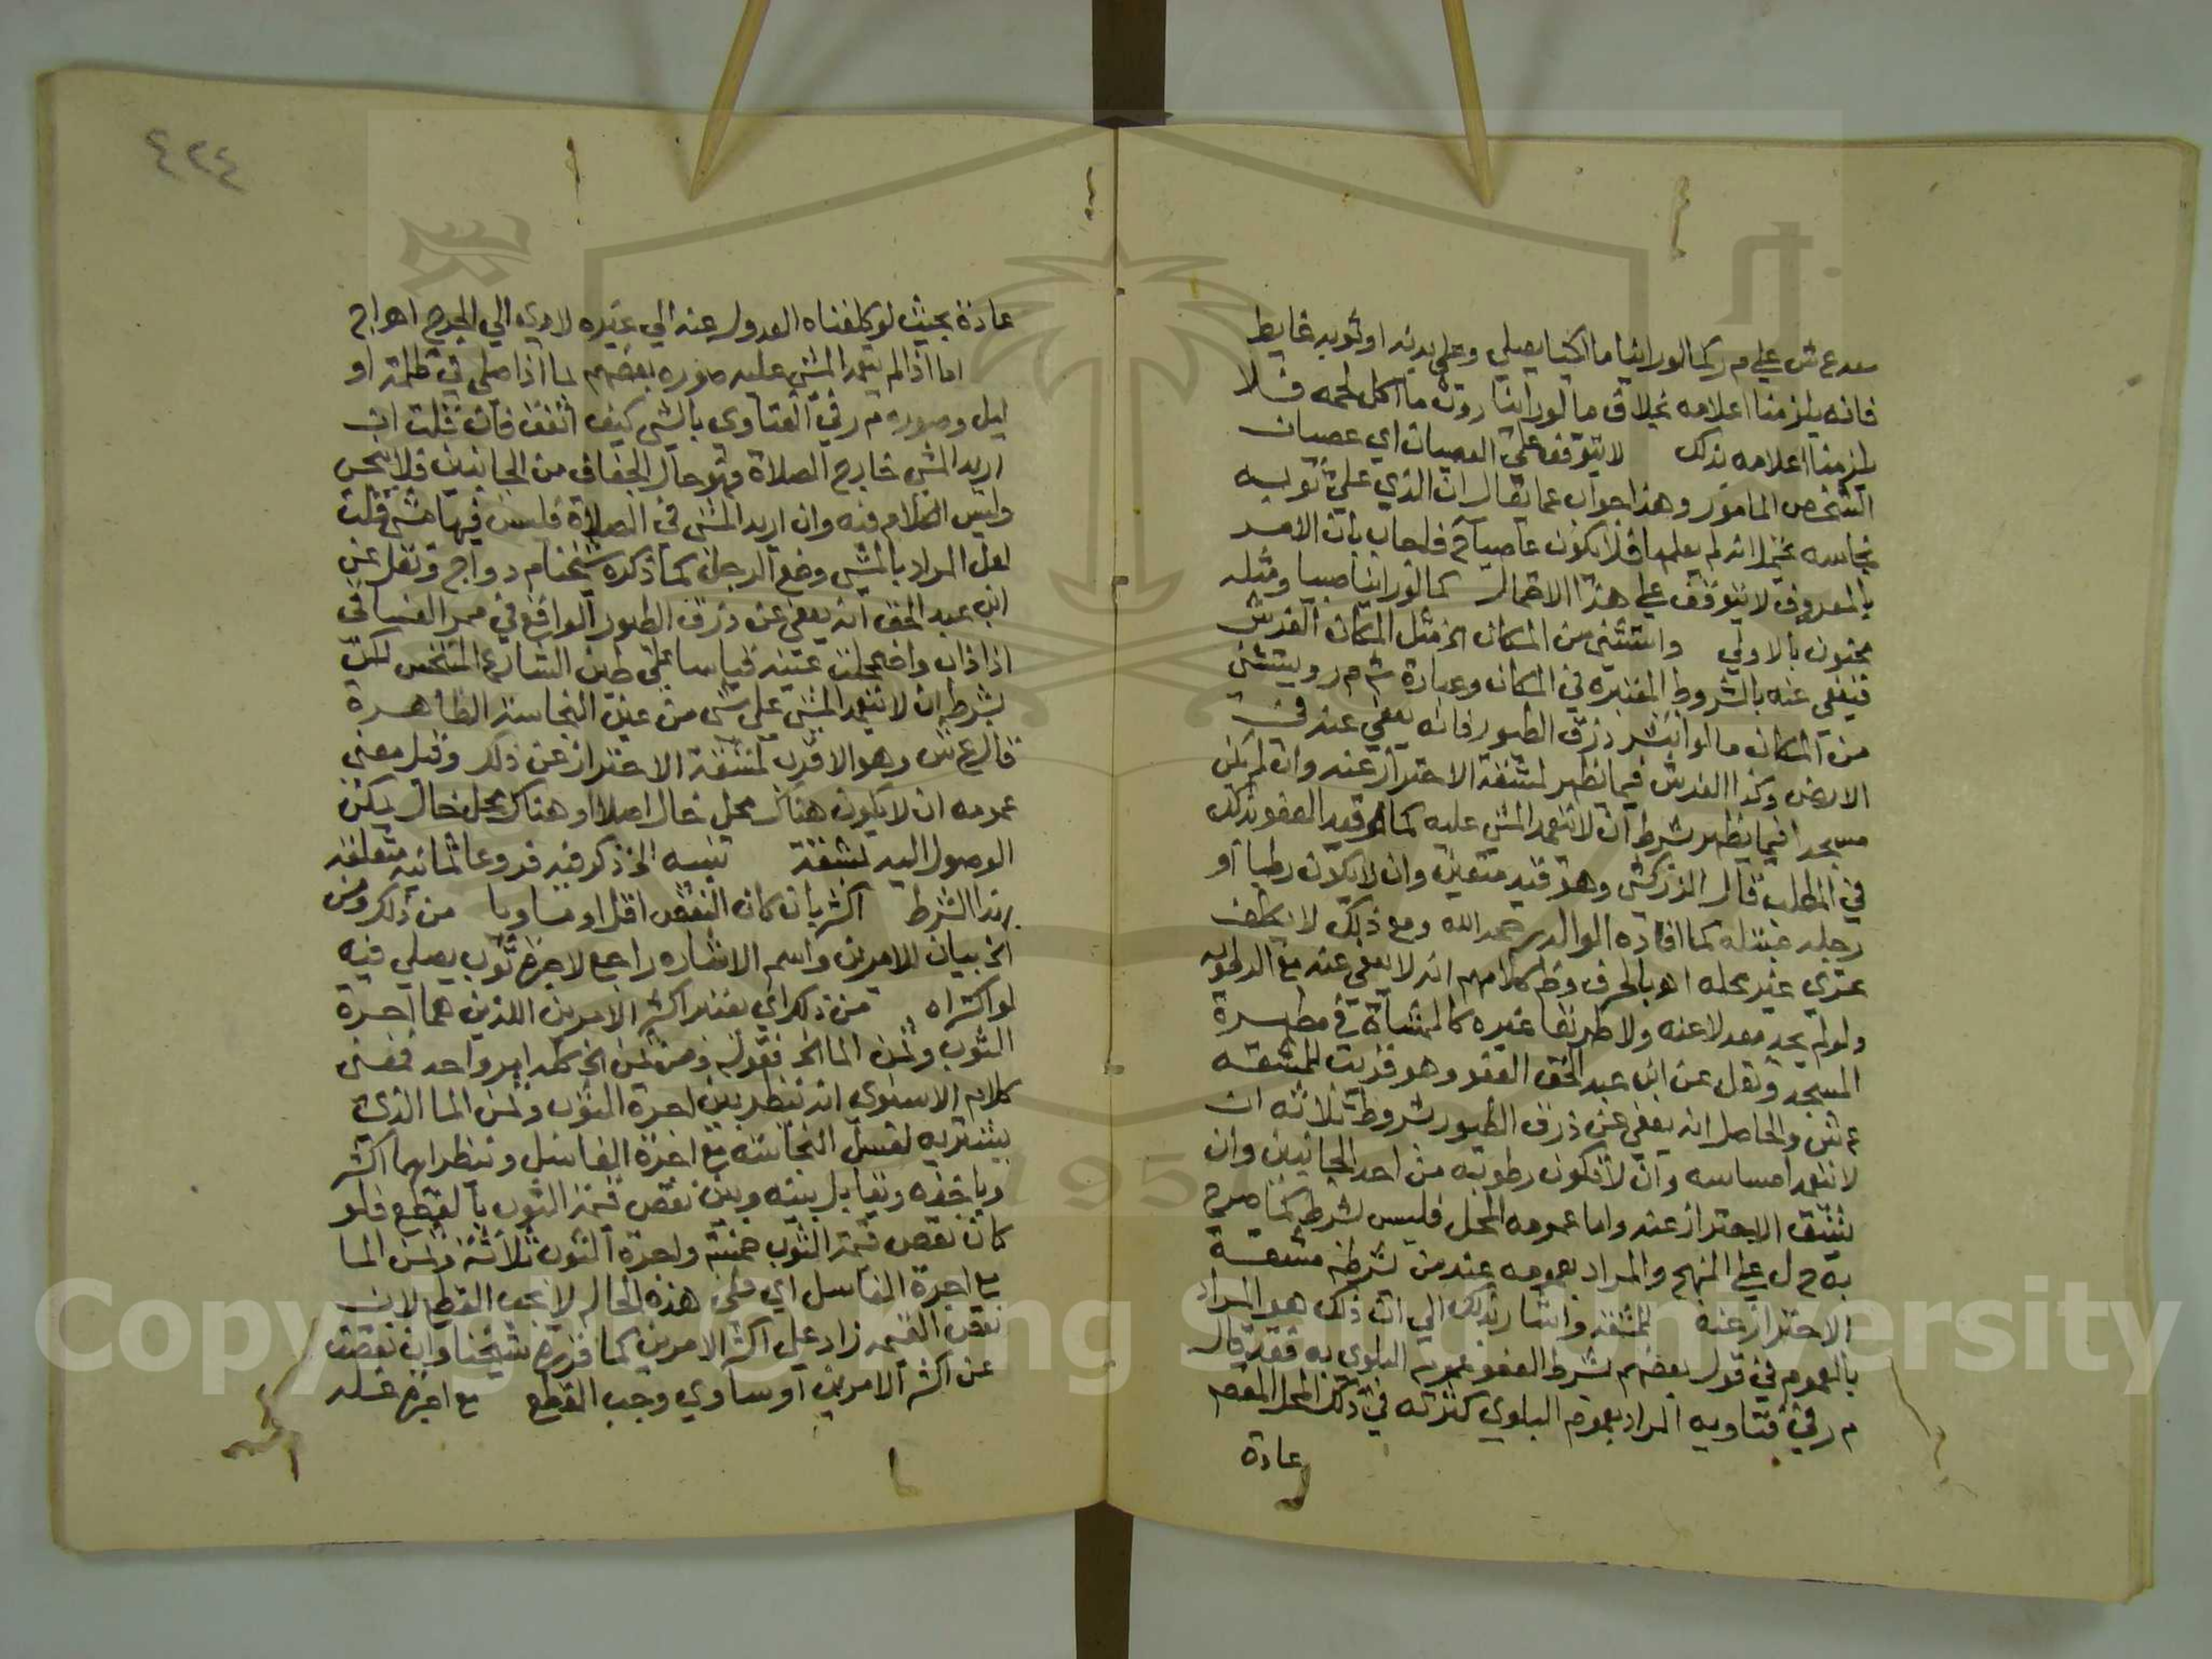 ع ش علي م ر كما لو راينا مالكيا يصلي وعلي بدنه او ثوبه غايط
فانه يلزمنا اعلامه بخلاف ما لو راينا روث ما اكل لحمه فلا
يلزمنا اعلامه بذلك لا يتوقف علي العصيان اي عصيان
الشخص المامور وهذا جواب عما يقال ان الذي علي ثوبه
نجاسه انه لم يعلمها فلا يكون عاصيا فاجاب بان الامر
بالمعروف لا يتوقف علي هذا الاحتمال كما لو راينا صبيا ومثله
مجنون بالاولي واستثني من المكان الخ مثل المكان الفرش
فيعفي عنه بالشروط المعتبره في المكان وعبارة ش م ر ويستثني
من المكان ما لو انتشر ذرق الطيور فانه يعفي عنه في
الارض وكذا الفرش فيما يظهر لمشقة الاحتراز عنه وان لم يكن
مسجدا فيما يظهر بشرط ان لا يتعمد المشي عليه كما قيد العفو بذلك
في المطلب قال الزركشي وهو قيد متعين وان لا يكون رطبا او
رجله مبتله كما افاده الوالد رحمه الله ومع ذلك لا يكلف
تحري غير محله اهـ بالحرف وظ كلامهم انه لا يعفي عنه مع الرطوبه
ولو لم يجد معدلا عنه ولا طريقا غيره كالممشاة في مطهرة
المسجد ونقل عن ابن عبد الحق العفو وهو قريب للمشقه
ع ش والحاصل انه يعفي عن ذرق الطيور بشروط ثلاثه ان
لا يتعمد امساسه وان لا تكون رطوبة من احد الجانبين وان
يشق الاحتراز عنه واما عمومه المحل فليس بشرط كما صرح
به ح ل علي المنهج والمراد بعمومه عند من شرطه مشقة
الاحتراز عنه للمشقه واشار بذلك الي ان ذلك هو المراد
بالعموم في قول بعضهم بشرط العفو عموم البلوي به فقد قال
م ر في فتاويه المراد بعموم البلوي كثرته في ذلك المحل
عادة
٤٢٤
عادة بحيث لو كلفناه العدول عنه الي غيره لادي الي الحرج اهـ اج
اما اذا لم يتعمد المشي عليه صوره بعضهم بما اذا صلي في ظلمة او
ليل وصوره م ر في الفتاوي بالمشي كيف اتفق فان قلت ان
اريد المشي خارج الصلاة وهو حال الجفاف من الجانبين فلا ينجس
وليس الكلام فيه وان اريد المشي في الصلاة فليس فيها مشي قلت
لعل المراد بالمشي وضع الرجل كما ذكره شيخنا م د و اج ونقل عن
ابن عبد الحق انه يعفي عن ذرق الطيور الواقع في ممر الفساقي
اذا ذاب واضمحلت عينه قياسا علي طين الشارع المتنجس لكن
بشرط ان لا يتعمد المشي علي شي من عين النجاسة الظاهرة
قال ع ش وهو الاقرب لمشقة الاحتراز عن ذلك وقيل معني
عمومه ان لا يكون هناك محل خال اصلا او هناك محل خال يمكن
الوصول اليه بمشقة تنبيه الخ ذكر فيه فروعا ثمانيه متعلقه
بهذا الشرط اكثر بان كان النقص اقل او مساويا من ذلك ومن
الخ بيان للامرين واسم الاشاره راجع لاجرة ثوب يصلي فيه
لو اكتراه من ذلك اي يعتبر اكثر الامرين اللذين هما اجرة
الثوب وثمن الما الخ فقوله ومن ثمن الخ امر واحد فمعني
كلام الاسنوي انه ننظر بين اجرة الثوب وثمن الما الذي
يشتريه لغسل النجاسه مع اجرة الغاسل وننظر ايهما اكثر
وياخذه ونقابل بينه وبين نقص قيمة الثوب بالقطع فلو
كان نقص قيمة الثوب خمسة واجرة الثوب ثلاثة وثمن الما
مع اجرة الغاسل اي ففي هذه الحاله لا يجب القطع لان
نقص القيمه زاد علي اكثر الامرين كما قرره شيخنا وان نقصت
عن اكثر الامرين او ساوي وجب القطع مع اجرة غسله
Copyright © King Saud University
1957